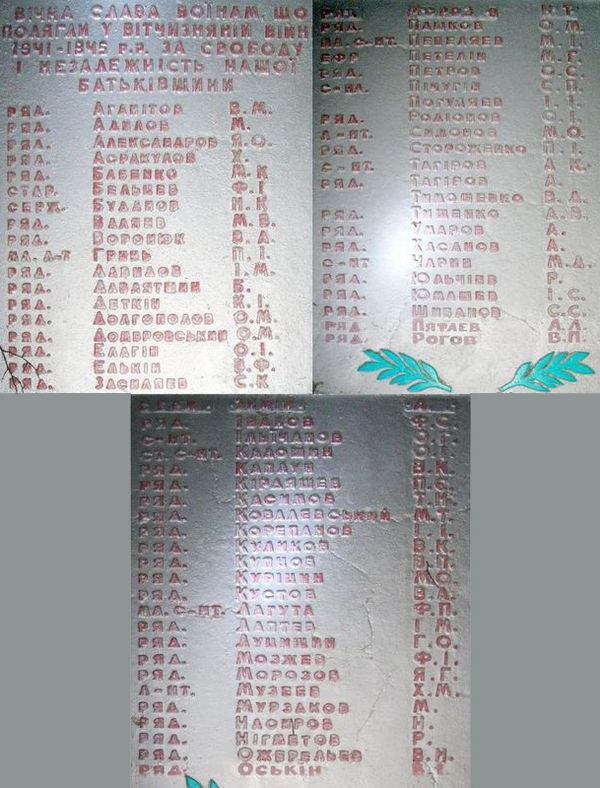 ВІЧНА СЛАВА ВОЇНАМ, ЩО
ПОЛЯГЛИ У ВІТЧИЗНЯНІЙ ВІЙНІ
1941-1945 р.р. ЗА СВОБОДУ
І НЕЗАЛЕЖНІСТЬ НАШОЇ
БАТЬКІВЩИНИ
РЯД. АГАПІТОВ В.М.
РЯД. АДИЛОВ М.
РЯД. АЛЕКСАНДРОВ Я.О.
РЯД. АСРАКУЛОВ Х.
РЯД. БАБЕНКО М.К
СТАР. БЕЛЬЦЕВ Ф.І.
СЕРЖ. БУДАНОВ Н.К
РЯД. ВДАЕВ М.В.
РЯД. ВОРОНЮК В.А.
МЛ. Л-Т ГРИНЬ П.І.
РЯД. ДАВИДОВ І.М.
РЯД. Б.
РЯД. ДЕТКІН К.І.
РЯД. ДОЛГОПОЛОВ О.М.
РЯД. ДОМБРОВСЬКИЙ О.М.
РЯД. ЕЛАГІН О.І.
РЯД. ЕЛЬКІН В.Ф.
РЯД. С.К
РЯД. МОРОЗОВ Н.Т.
РЯД. ПАШКОВ О.С.
МЛ.С-НТ. ПЕПЕЛЯЕВ М.І.
ЕФР ПЕТЕЛІН М.Г.
РЯД. ПЕТРОВ О.С.
С-НТ. ПІЧУГІН С.П.
ПОГУДЯЕВ І.І.
РЯД. РОДІОНОВ О.
Л-НТ. СИМОНОВ М.О.
РЯД. СТОРОЖЕНКО П.І.
С-НТ. ТАГІРОВ А.К.
РЯД. ТАГІРОВ А.
ТИМОШЕВКО В.Д.
РЯД. ТИЩЕНКО А.В.
РЯД. УМАРОВ А.
РЯД. ХАСАНОВ А.
С-НТ ЧАРИН М.Д.
РЯД. ЮЛЬЧІЕВ Р.
РЯД. ЮМАШЕВ І.С.
РЯД. ШИБАНОВ С.С.
РЯД. ПЯТАЕВ А.Л.
РЯД. РОГОВ В.П.
ЗИМІН
РЯД. ІВАНОВ Ф.С.
С-НТ. ІЛЬІЧАНОВ О.Г.
СТ. С-НТ. КАЛОШИН О.І.
РЯД. КАПЛУН В.К.
РЯД. КІРДЯШЕВ П.Є.
РЯД. КАСИМОВ Т.Н.
РЯД. КОВАЛЕВСЬКИЙ М.Т.
РЯД. КОРЕПАНОВ І.І.
РЯД. КУЛИКОВ В.К.
РЯД. КУПЦОВ В.П.
РЯД. КУРІЦИН М.О.
РЯД. КУСТОВ В.А.
МЛ. С-НТ. ЛАГУТА Ф.П.
РЯД. ЛАПТЕВ І.М.
РЯД. ЛУЦИШИН Г.О.
РЯД. МОЗЖЕВ Ф.І.
РЯД. МОРОЗОВ Я.Г.
Л-НТ. МУЗЕЕВ Х.М.
РЯД. МУРЗАКОВ М.
РЯД. НАСИРОВ Н.
РЯД. НІГМЕТОВ Р.
РЯД. ОЖЕРЕЛЬЕВ В.Н.
РЯД. ОСЬКІН